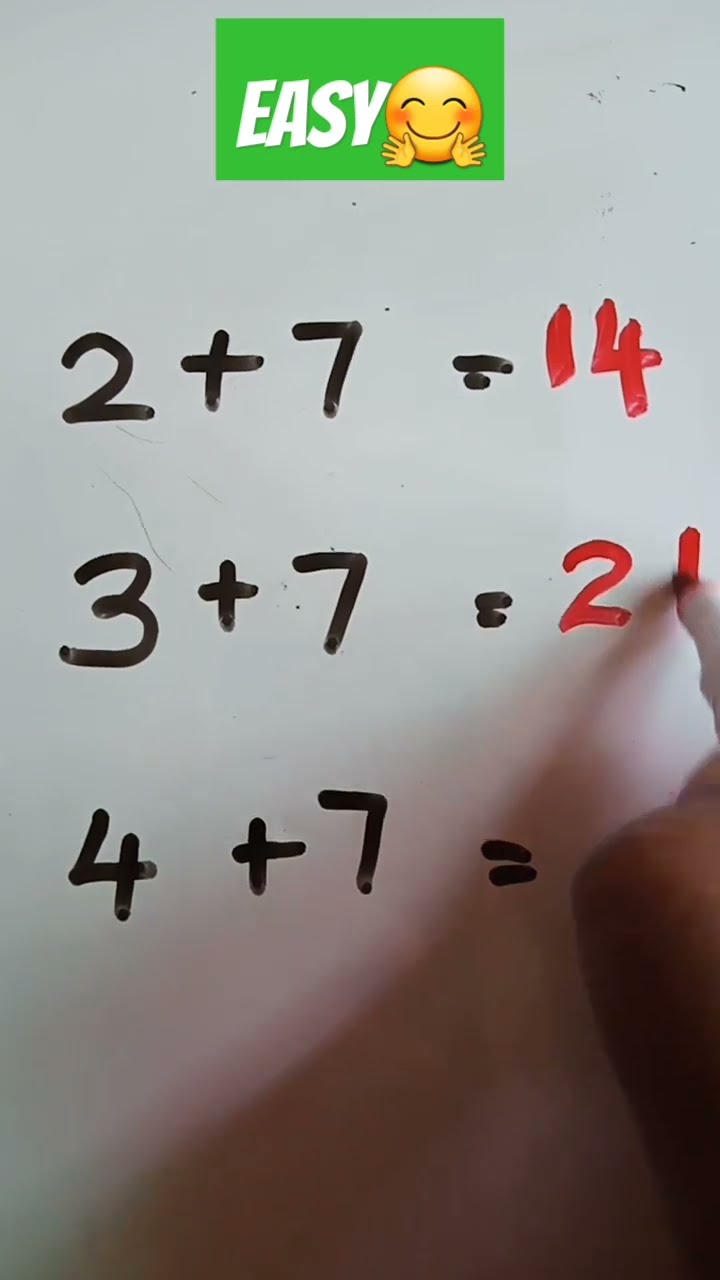 EASY🤗
2 + 7 = 14
3 + 7 = 21
4 + 7 =